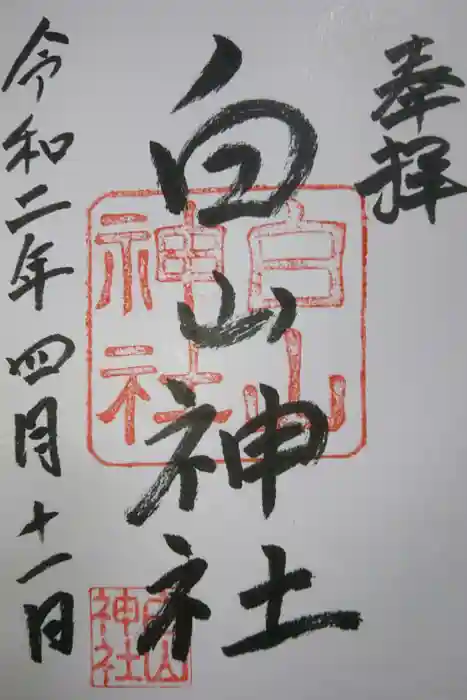 奉拝
白山神社
令和二年四月十一日
白山
神社
白山
神社